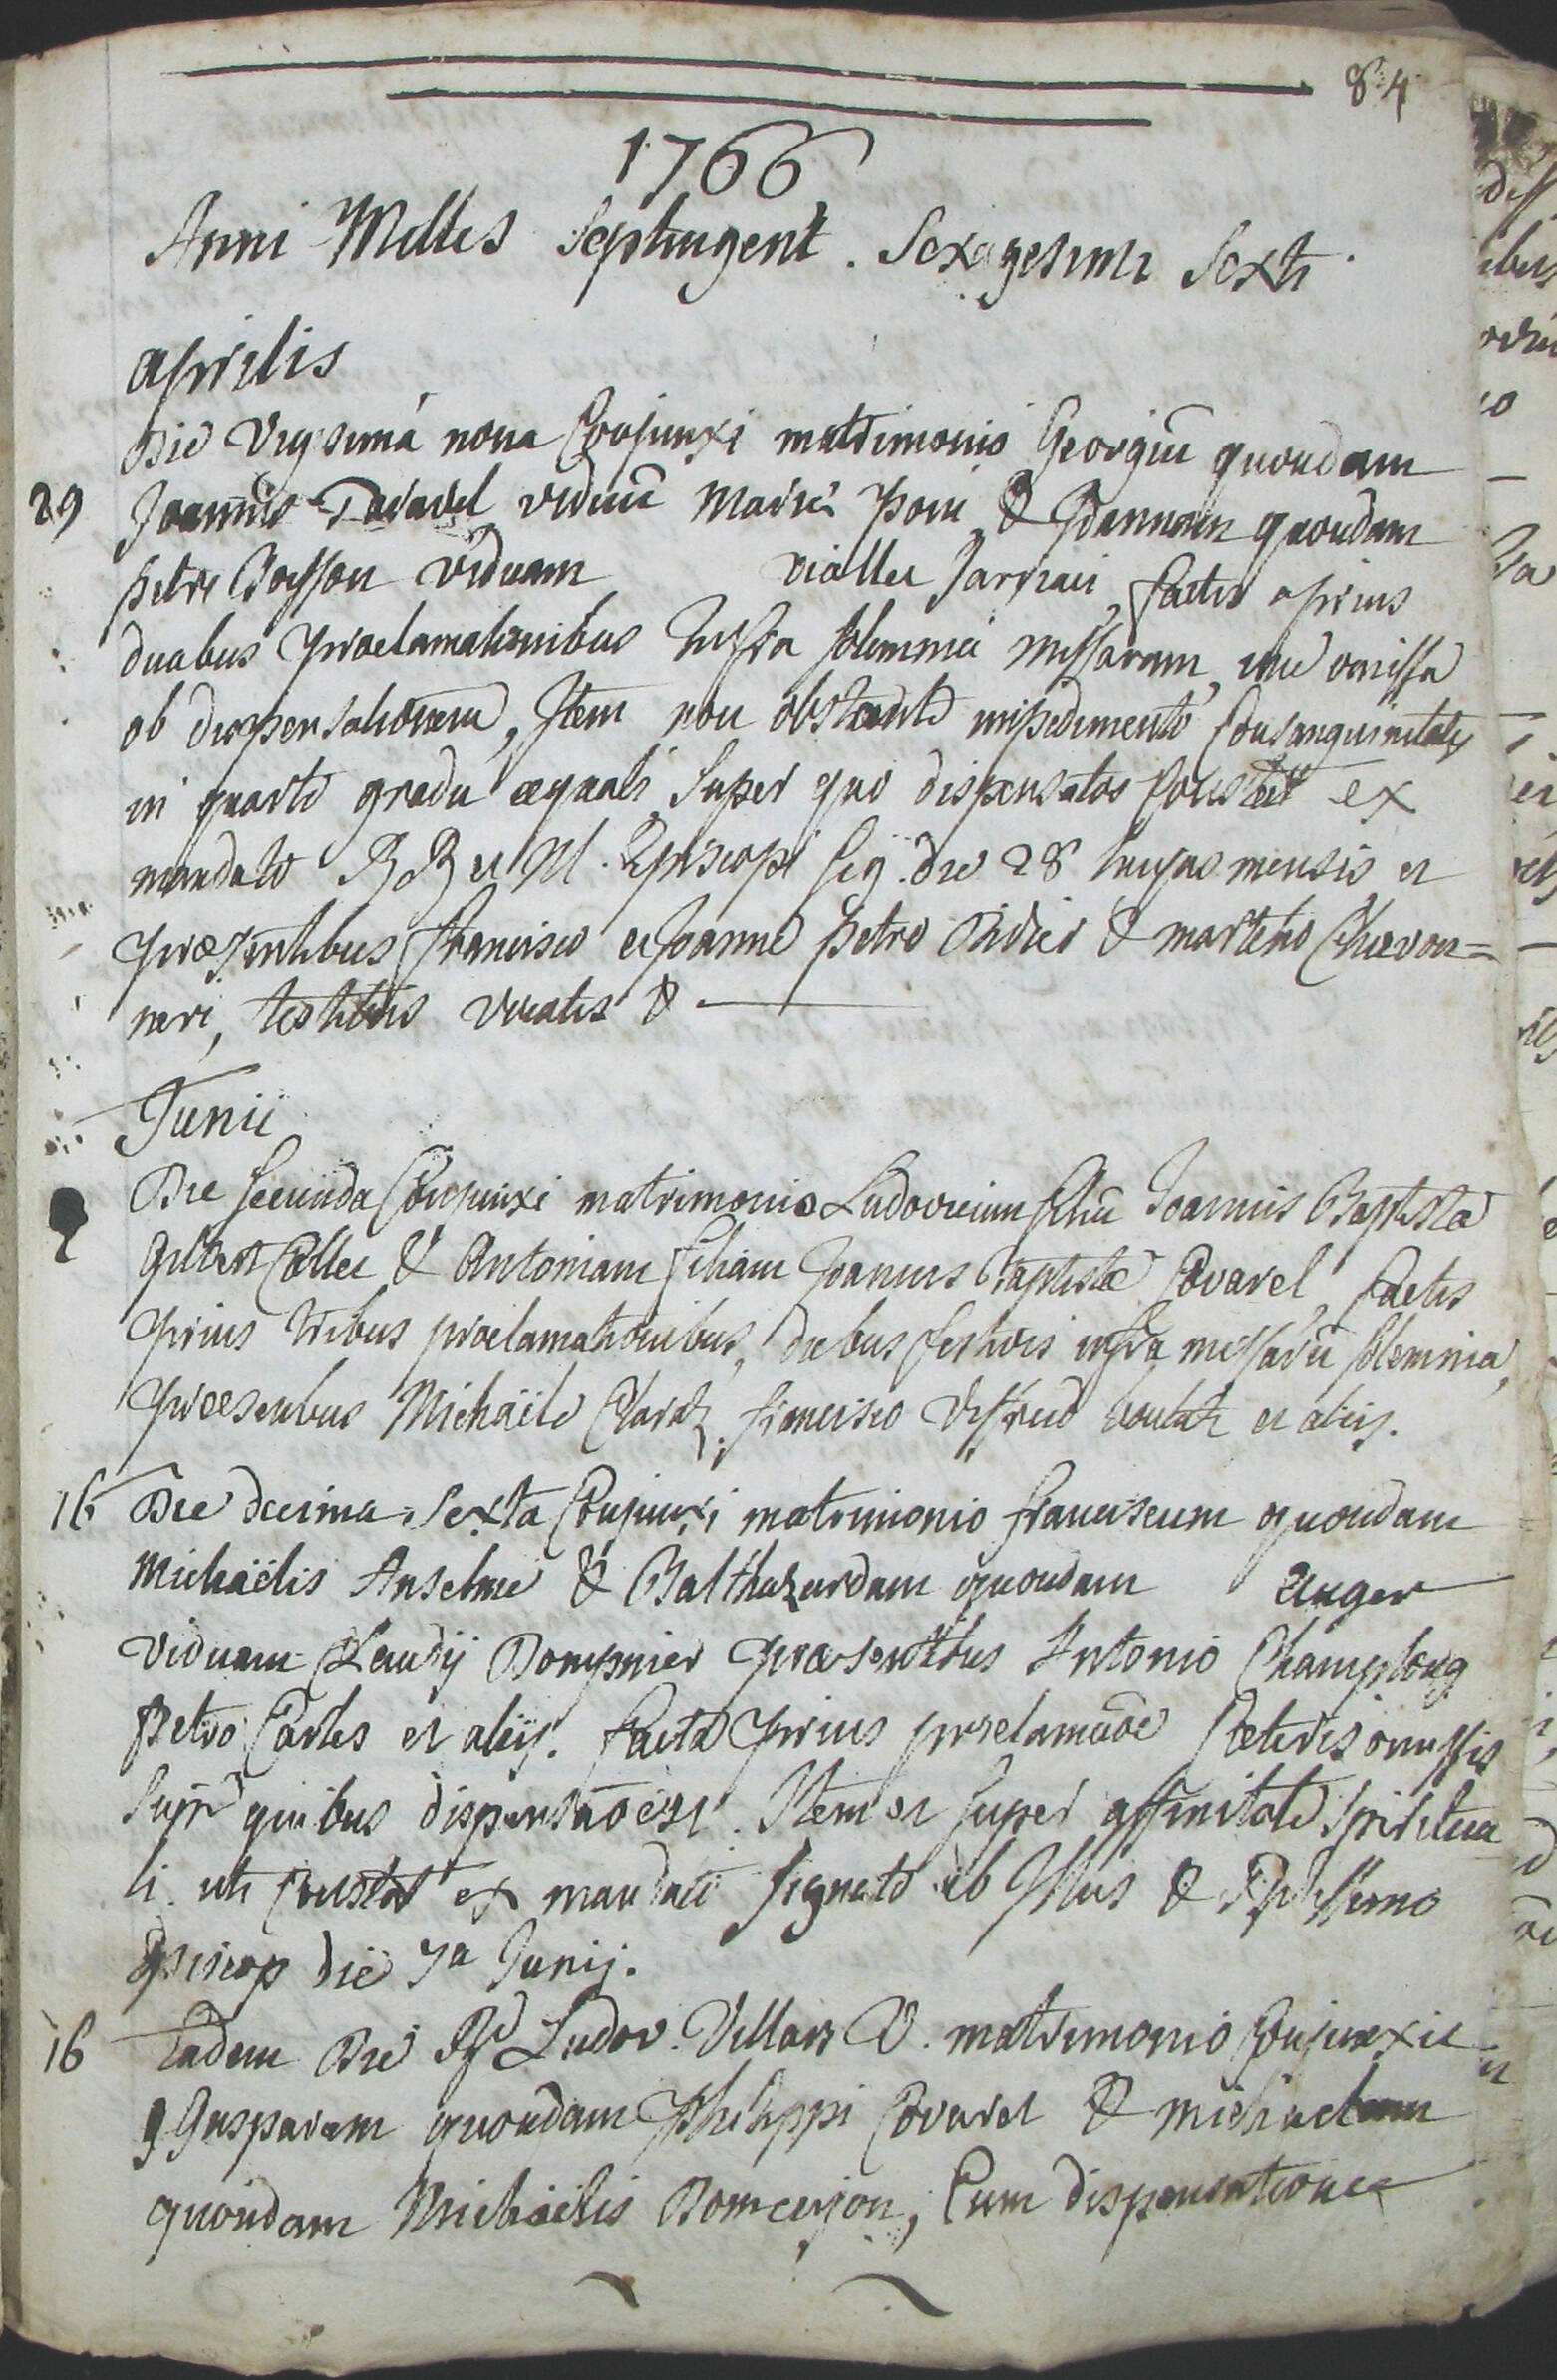 84
1766
Anni Milles Septingent. Sexagesimi Sexti
aprilis
Die Vigesima nona Conjunxi matrimonio Georgiũ quondam
29 Joannis Davavel viduũ Mariæ &  Joannam quondam
petri Bosson viduam viallet Jarriaci, factis aprius
duabus proclamationibus Infra solemnia missarum, una omissa
ob dispensationem, Item non obstante impedimento Consanguinitatis
in quarto gradu æquali super quo dispensatos constat ex
mandato RR et Ill. Episcopi sig. die 28 hujus mensis et
præsentibus Francisco et Joanne petro Didier & martino Chevon=
neri, testibus vocatis &
Junii
2 Die secunda Conjunxi matrimonio Ludovicum filiũ Joannis Baptistæ
gilbert Collet & Antoniam filiam Joannis Baptistæ Covarel, factis
prius tribus proclamationibus, diebus festivis infra missarũ solemnia,
præsentibus Michaële Claraz, francisco et aliis.
16 Die decima Sexta Conjunxi matrimonio franciscum quondam
Michaëlis Anselme & Balthazardam quondam auger
viduam Claudij Dompnier præsentibus Antonio Champlong
petro Carles et aliis. facta prius proclamãõe Cæteris omissis
super quibus dispensãõ est. Item et super affinitate Spiritua
li uti Constat ex mandato signato ab Illus & Rdissimo
Episcop die 7a Junij.
16 Eadem Die Rd Ludov. Villars V. matrimonio Conjunxit
gasparam quondam Philippi Covarel & michaelam
quondam Michaëlis Domenjon, Cum dispensatione